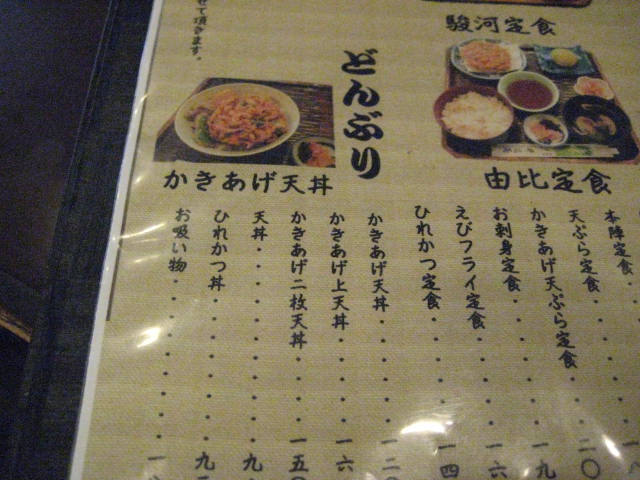 駿河定食
由比定食
本陣定食
天ぷら定食
かきあげ天ぷら定食
お刺身定食
えびフライ定食
ひれかつ定食
どんぶり
かきあげ天丼
かきあげ天丼
かきあげ上天丼
かきあげ二枚天丼
天丼
ひれかつ丼
お吸い物
せて頂きます。